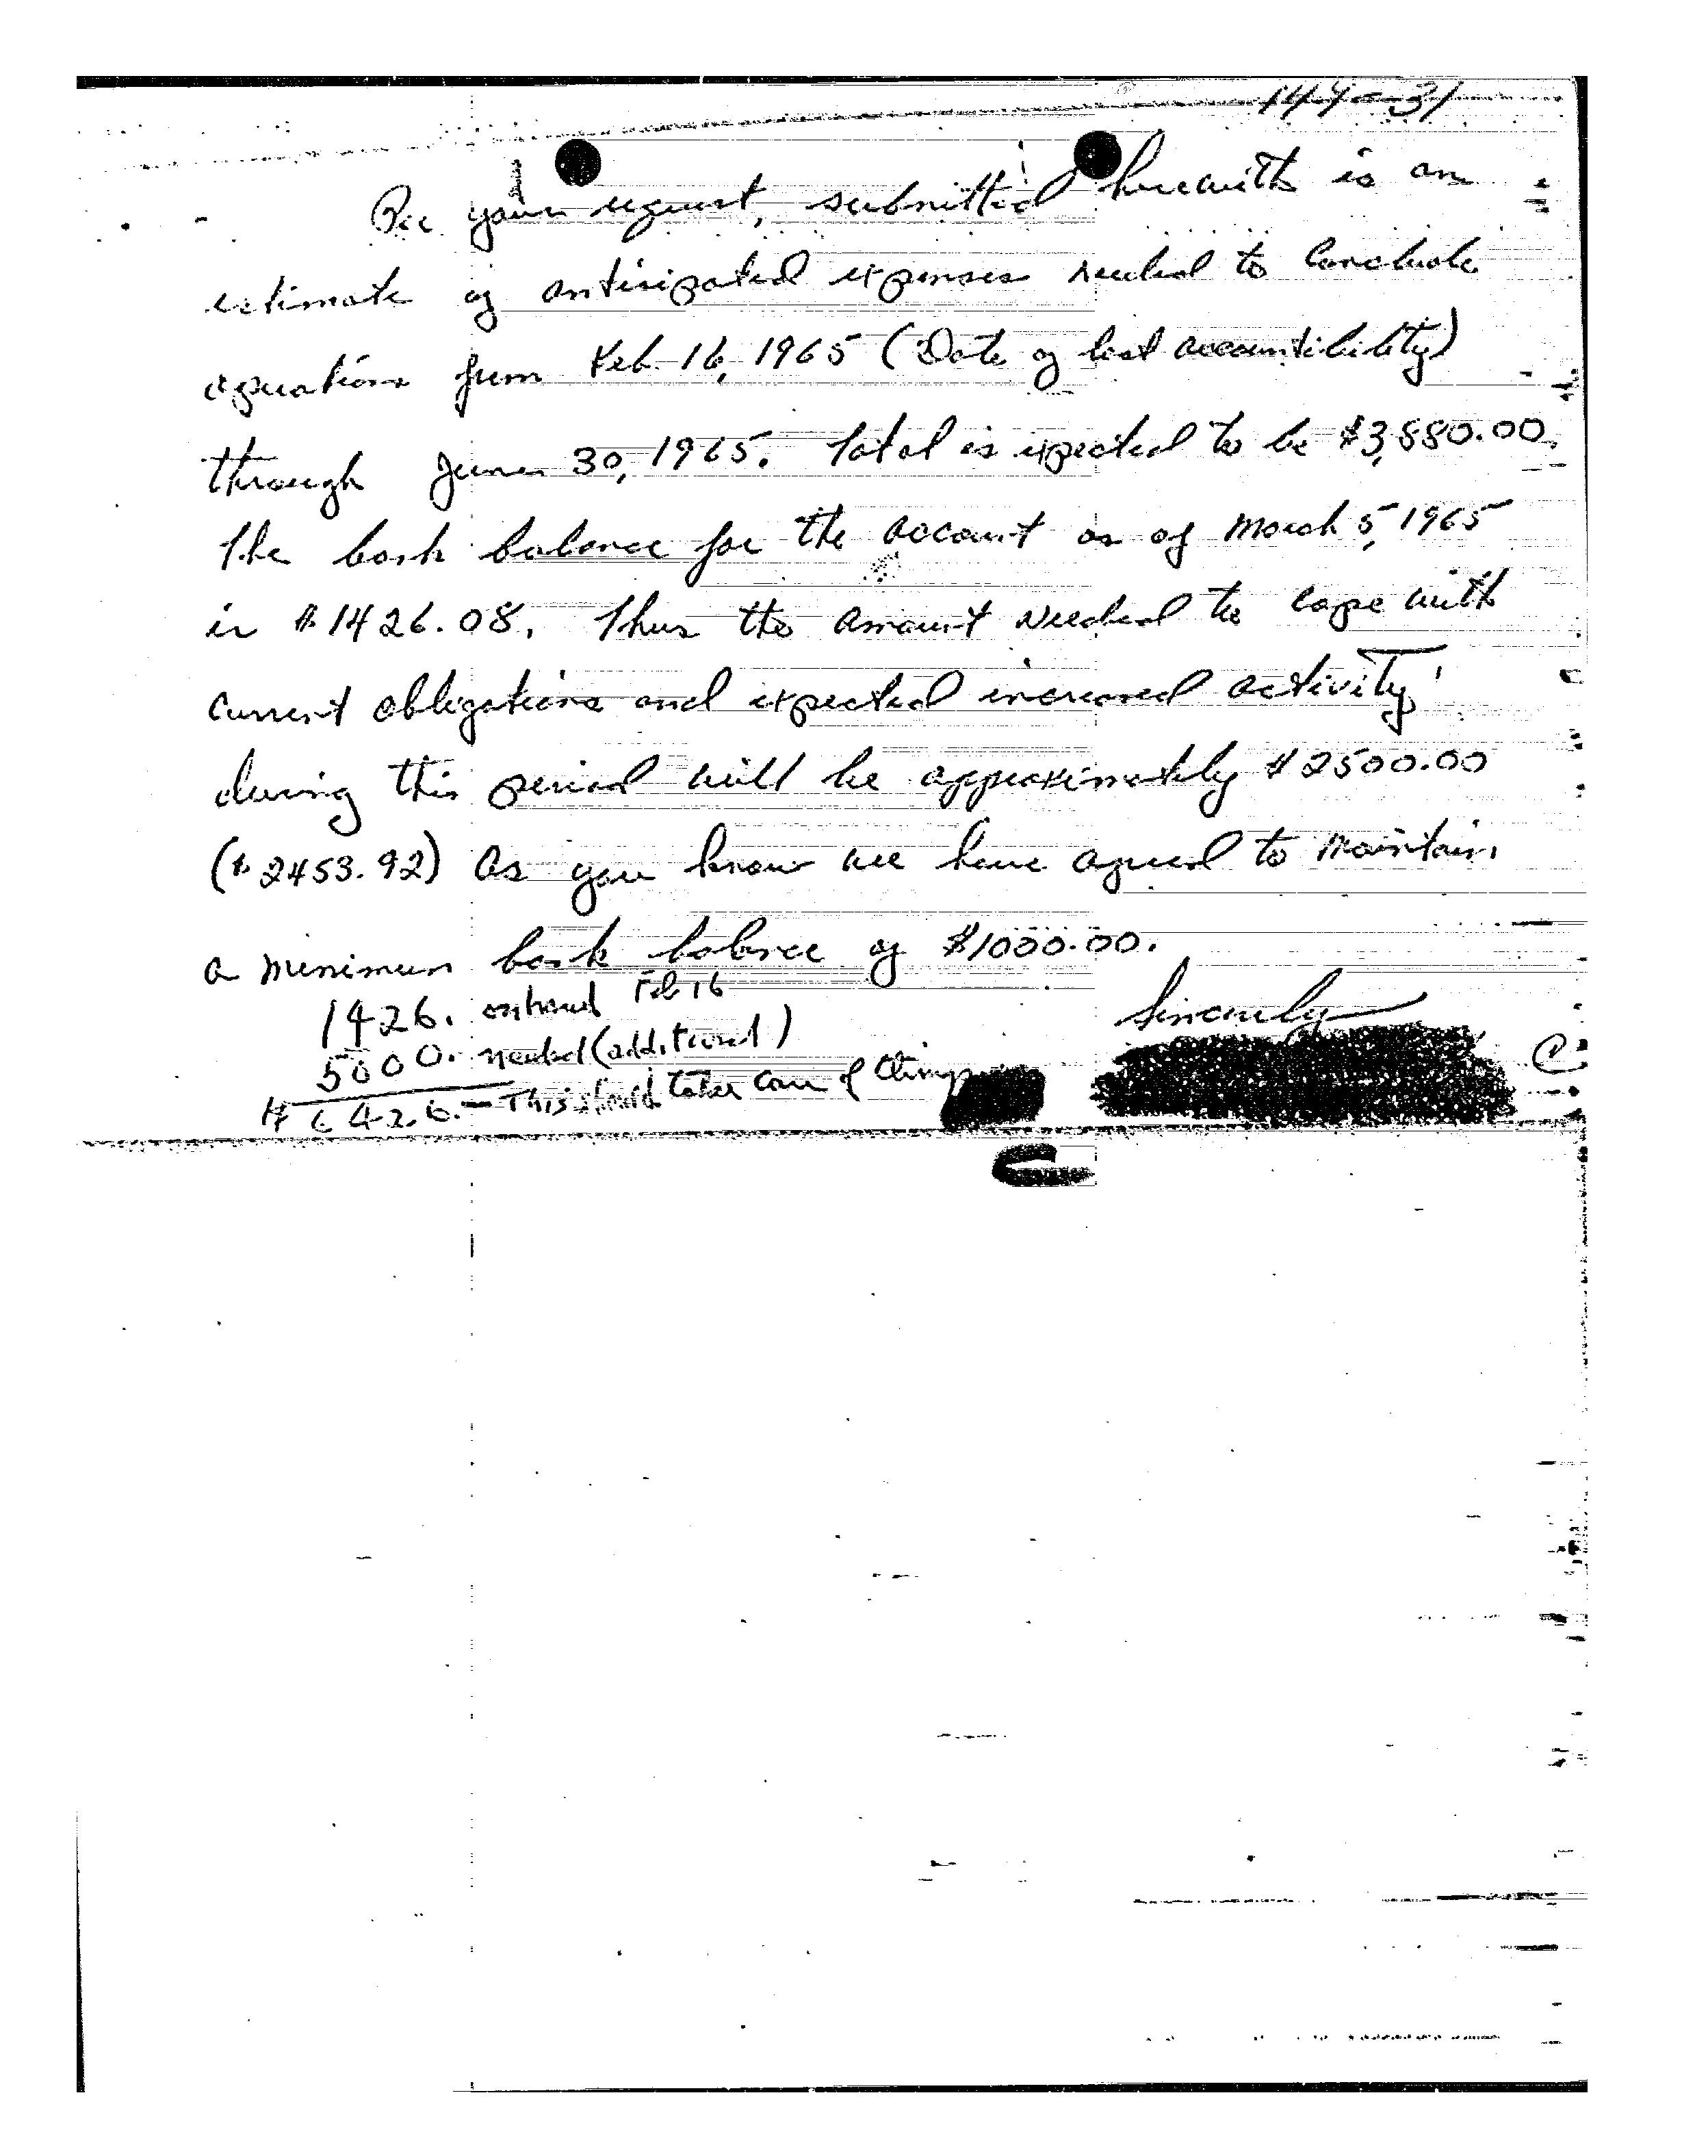 144-31
Per your request, submitted herewith is an
estimate of anticipated expenses needed to conclude
operations from Feb. 16, 1965 (Date of last accountibility)
through June 30, 1965. Total is expected to be $3,880.00.
The bank balance for the account as of March 5, 1965
is $1426.08. Thus the amount needed to cope with
current obligations and expected increased activity
during this period will be approximately $2500.00
($2453.92) As you know we have agreed to maintain
a minimum bank balance of $1000.00.
1426. on hand Feb 16
Sincerely
5000. needed (additional)
$6426. — This should take care of things
C